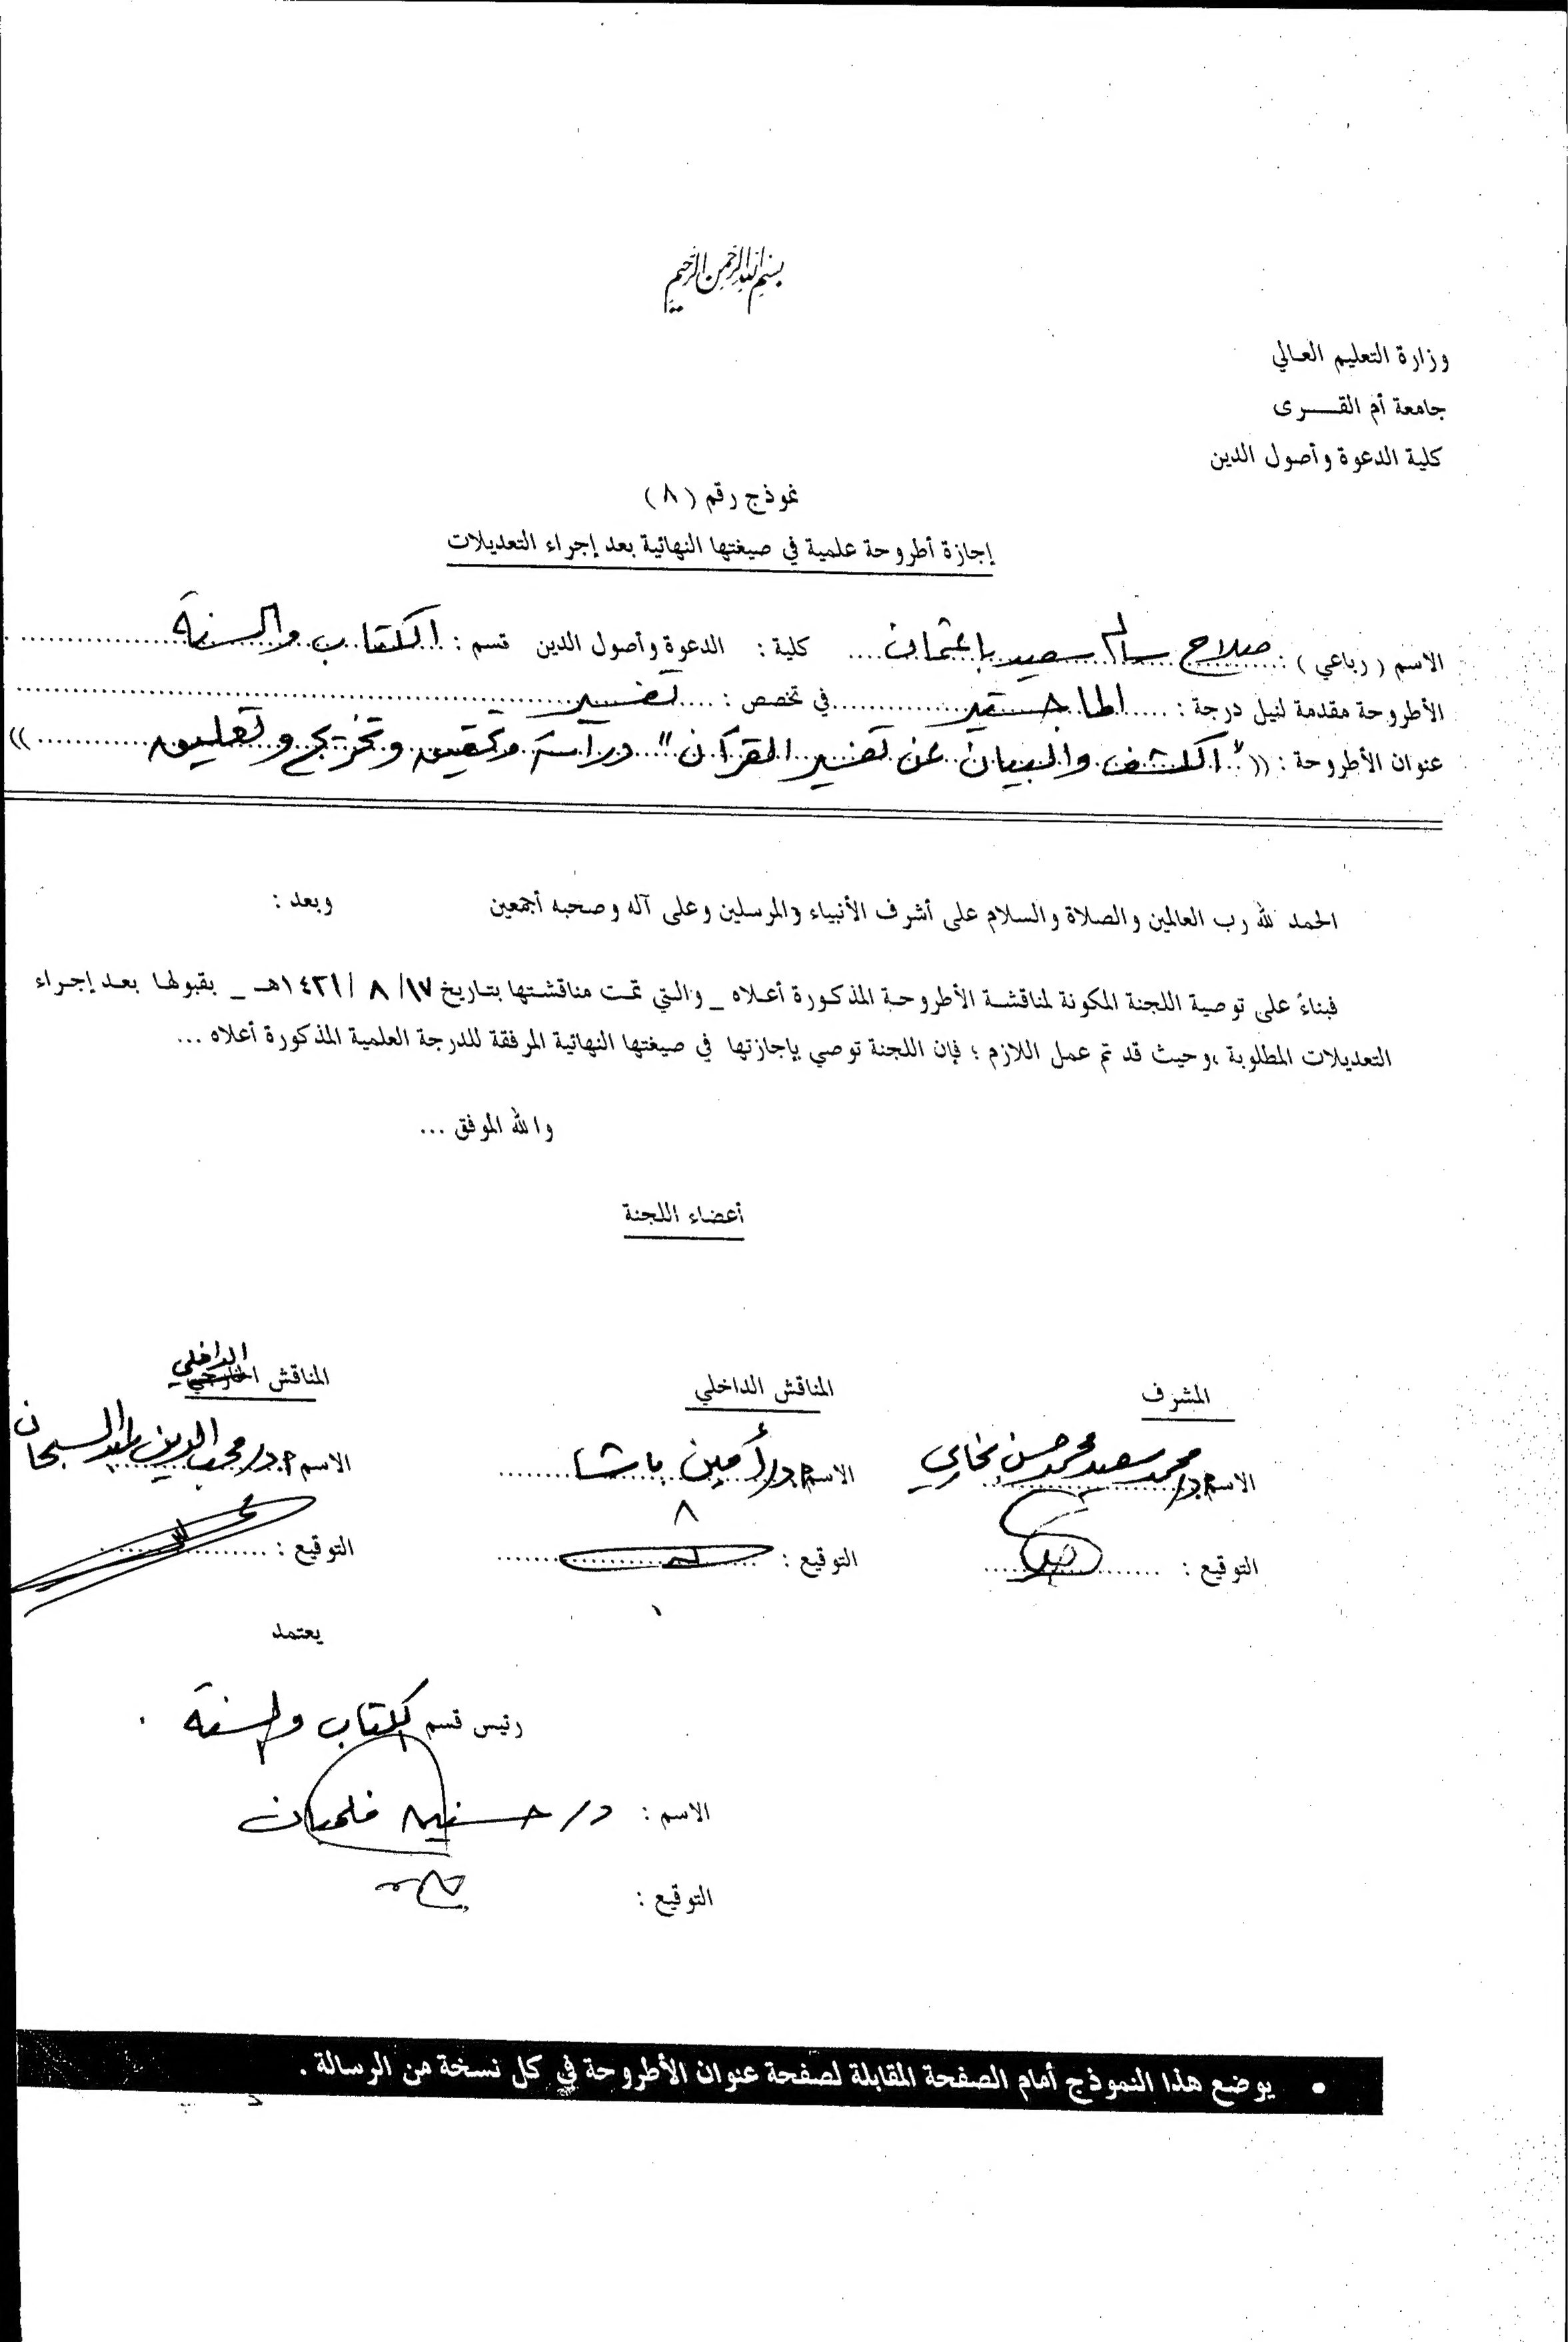 بسم الله الرحمن الرحيم
وزارة التعليم العالي
جامعة أم القــــرى
كلية الدعوة وأصول الدين
نموذج رقم ( ٨ )
إجازة أطروحة علمية في صيغتها النهائية بعد إجراء التعديلات
الاسم ( رباعي ) : صلاح سالم سعيد باعثمان كلية : الدعوة وأصول الدين قسم : الكتاب والسنة
الأطروحة مقدمة لنيل درجة : الماجستير في تخصص : تفسير
عنوان الأطروحة : (( " الكشف والبيان عن تفسير القرآن " دراسة وتحقيق وتخريج وتعليق ))
الحمد لله رب العالمين والصلاة والسلام على أشرف الأنبياء والمرسلين وعلى آله وصحبه أجمعين وبعد :
فبناءً على توصية اللجنة المكونة لمناقشة الأطروحة المذكورة أعلاه _ والتي تمت مناقشتها بتاريخ ١٧/ ٨ /١٤٢١هـ _ بقبولها بعد إجراء
التعديلات المطلوبة ،وحيث قد تم عمل اللازم ؛ فإن اللجنة توصي بإجازتها في صيغتها النهائية المرفقة للدرجة العلمية المذكورة أعلاه ...
والله الموفق ...
أعضاء اللجنة
المشرف المناقش الداخلي المناقش الخارجي الداخلي
الاسم أ.د/ محمد سعيد محمد حسن بخاري الاسم أ.د/ أمين باشا الاسم أ.د/ محب الدين عبد السبحان
التوقيع : التوقيع : التوقيع :
يعتمد
رئيس قسم الكتاب والسنة
الاسم : د/ حسنين فلمبان
التوقيع :
• يوضع هذا النموذج أمام الصفحة المقابلة لصفحة عنوان الأطروحة في كل نسخة من الرسالة .